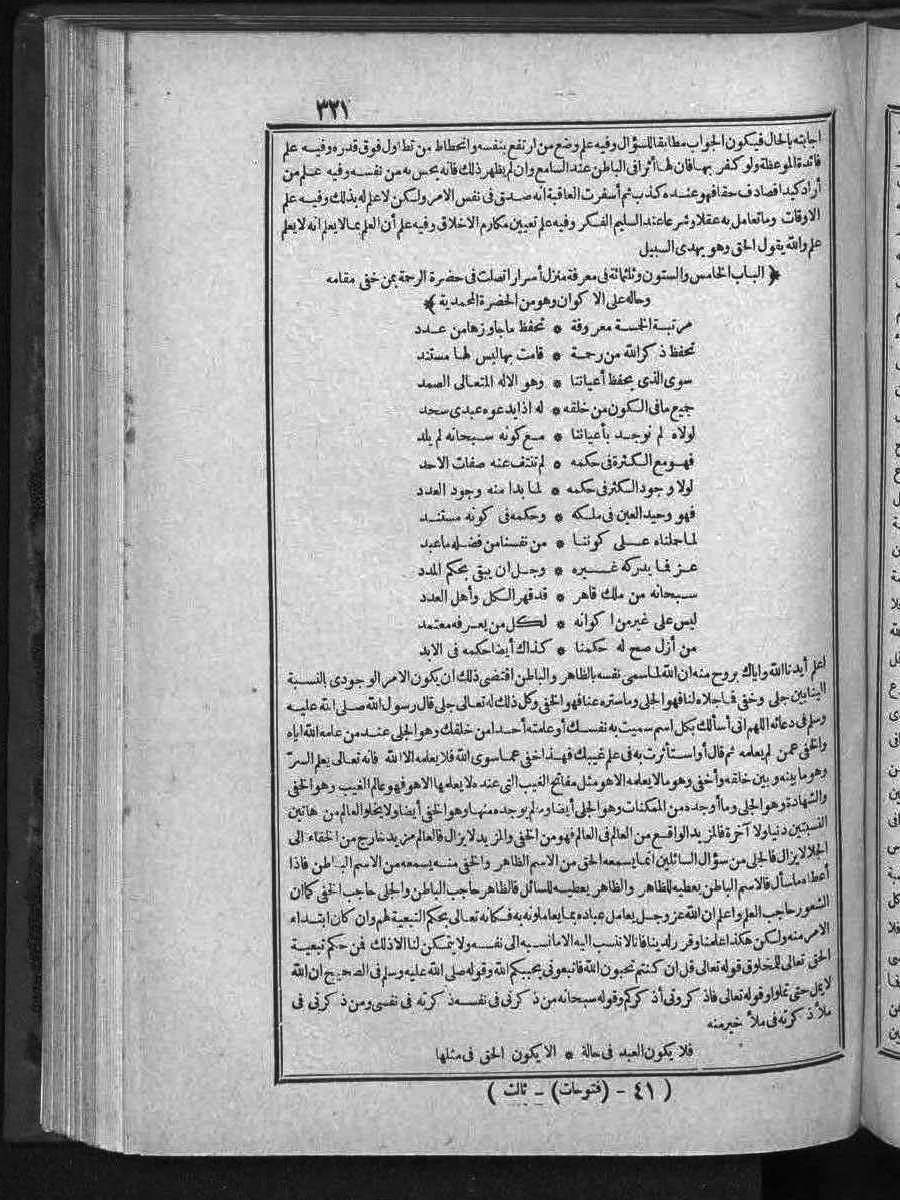 ٣٢١
اجابته بالحال فيكون الجواب مطابقا للسؤال وفيه علم وضع من ارتفع بنفسه وانحطاط من تطاول فوق قدره وفيه علم
فائدة الموعظة ولو كفر بها فان لها أثرا في الباطن عند السامع وان لم يظهر ذلك فانه يحس به من نفسه وفيه علم من
أراد كيدا فصادف حقا فهو عنده كذب ثم أسفرت العاقبة انه صدق في نفس الامر ولكن لا علم له بذلك وفيه علم
الاوقات وما تعامل به عقلا وشرعا عند السليم الفكر وفيه علم تعيين مكارم الاخلاق وفيه علم أن العلم بما لا يعلم انه لا يعلم
علم والله يقول الحق وهو يهدى السبيل
﴿ الباب الخامس والستون وثلثمائة في معرفة منزل أسرار اتصلت في حضرة الرحمة بمن خفى مقامه
وحاله على الاكوان وهو من الحضرة المحمدية ﴾
مرتبة الخمسة معروفة * تحفظ ما جاوزها من عدد
تحفظ ذكر الله من رحمة * قامت بها ليس لها مستند
سوى الذي يحفظ أعياننا * وهو الاله المتعالى الصمد
جميع ما في الكون من خلقه * له اذا يدعوه عبدى سجد
لولاه لم نوجد بأعياننا * مع كونه سبحانه لم يلد
فهو مع الكثرة في حكمه * لم تنتف عنه صفات الاحد
لولا وجود الكثر في حكمه * لما بدا منه وجود العدد
فهو وحيد العين في ملكه * وحكمه في كونه مستند
لما حلناه على كوننا * من نفسنا من فضله ما عبد
عز فما يدركه غيره * وجل ان يبقى بحكم المدد
سبحانه من ملك قاهر * قد قهر الكل وأهل العدد
ليس على غير من اكوانه * لكل من يعرفه معتمد
من أزل صح له حكمنا * كذاك أيضا حكمه في الابد
اعلم أيدنا الله واياك بروح منه ان الله لما سمى نفسه بالظاهر والباطن اقتضى ذلك ان يكون الامر الوجودى بالنسبة
الينا بين جلى وخفى فما جلاه لنا فهو الجلى وما ستره عنا فهو الخفى وكل ذلك له تعالى جلى قال رسول الله صلى الله عليه
وسلم في دعائه اللهم انى أسألك بكل اسم سميت به نفسك أو علمته أحدا من خلقك وهو الجلى عند من علمه الله اياه
والخفى عمن لم يعلمه ثم قال أو استأثرت به في علم غيبك فهذا خفى عما سوى الله فلا يعلمه الا الله فانه تعالى يعلم السر
وهو ما بينه وبين خلقه وأخفى وهو ما لا يعلمه الا هو مثل مفاتح الغيب التى عنده لا يعلمها الا هو فهو عالم الغيب وهو الخفى
والشهادة وهو الجلى وما أوجده من الممكنات وهو الجلى أيضا وما لم يوجده منها وهو الخفى أيضا ولا يخلو العالم من هاتين
النسبتين دنيا ولا آخرة فالمزيد الواقع من العالم في العالم فهو من الخفى والمزيد لا يزال فالعالم مزيد خارج من الخفاء الى
الجلا لا يزال فالجلى من سؤال السائلين انما يسمعه الحق من الاسم الظاهر والخفى منه يسمعه من الاسم الباطن فاذا
أعطاه ما سأل فالاسم الباطن يعطيه للظاهر والظاهر يعطيه للسائل فالظاهر حاجب الباطن والجلى حاجب الخفى كما ان
الشعور حاجب العلم واعلم ان الله عز وجل يعامل عباده بما يعاملونه به فكانه تعالى بحكم التبعية لهم وان كان ابتداء
الامر منه ولكن هكذا علمنا وقرر لدينا فانا لا ننسب اليه الا ما نسبه الى نفسه ولا يتمكن لنا الا ذلك فمن حكم تبعية
الحق تعالى للمخلوق قوله تعالى قل ان كنتم تحبون الله فاتبعونى يحببكم الله وقوله صلى الله عليه وسلم في الصحيح ان الله
لا يمل حتى تملوا وقوله تعالى فاذكرونى أذكركم وقوله سبحانه من ذكرنى في نفسه ذكرته في نفسى ومن ذكرنى في
ملأ ذكرته في ملأ خير منه
فلا يكون العبد في حالة * الا يكون الحق في مثلها
( ٤١ - (فتوحات) - ثالث )